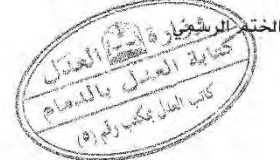 الختم الرسمي
وزارة العدل
كتابة العدل بالدمام
كاتب العدل بمكتب رقم (٥)